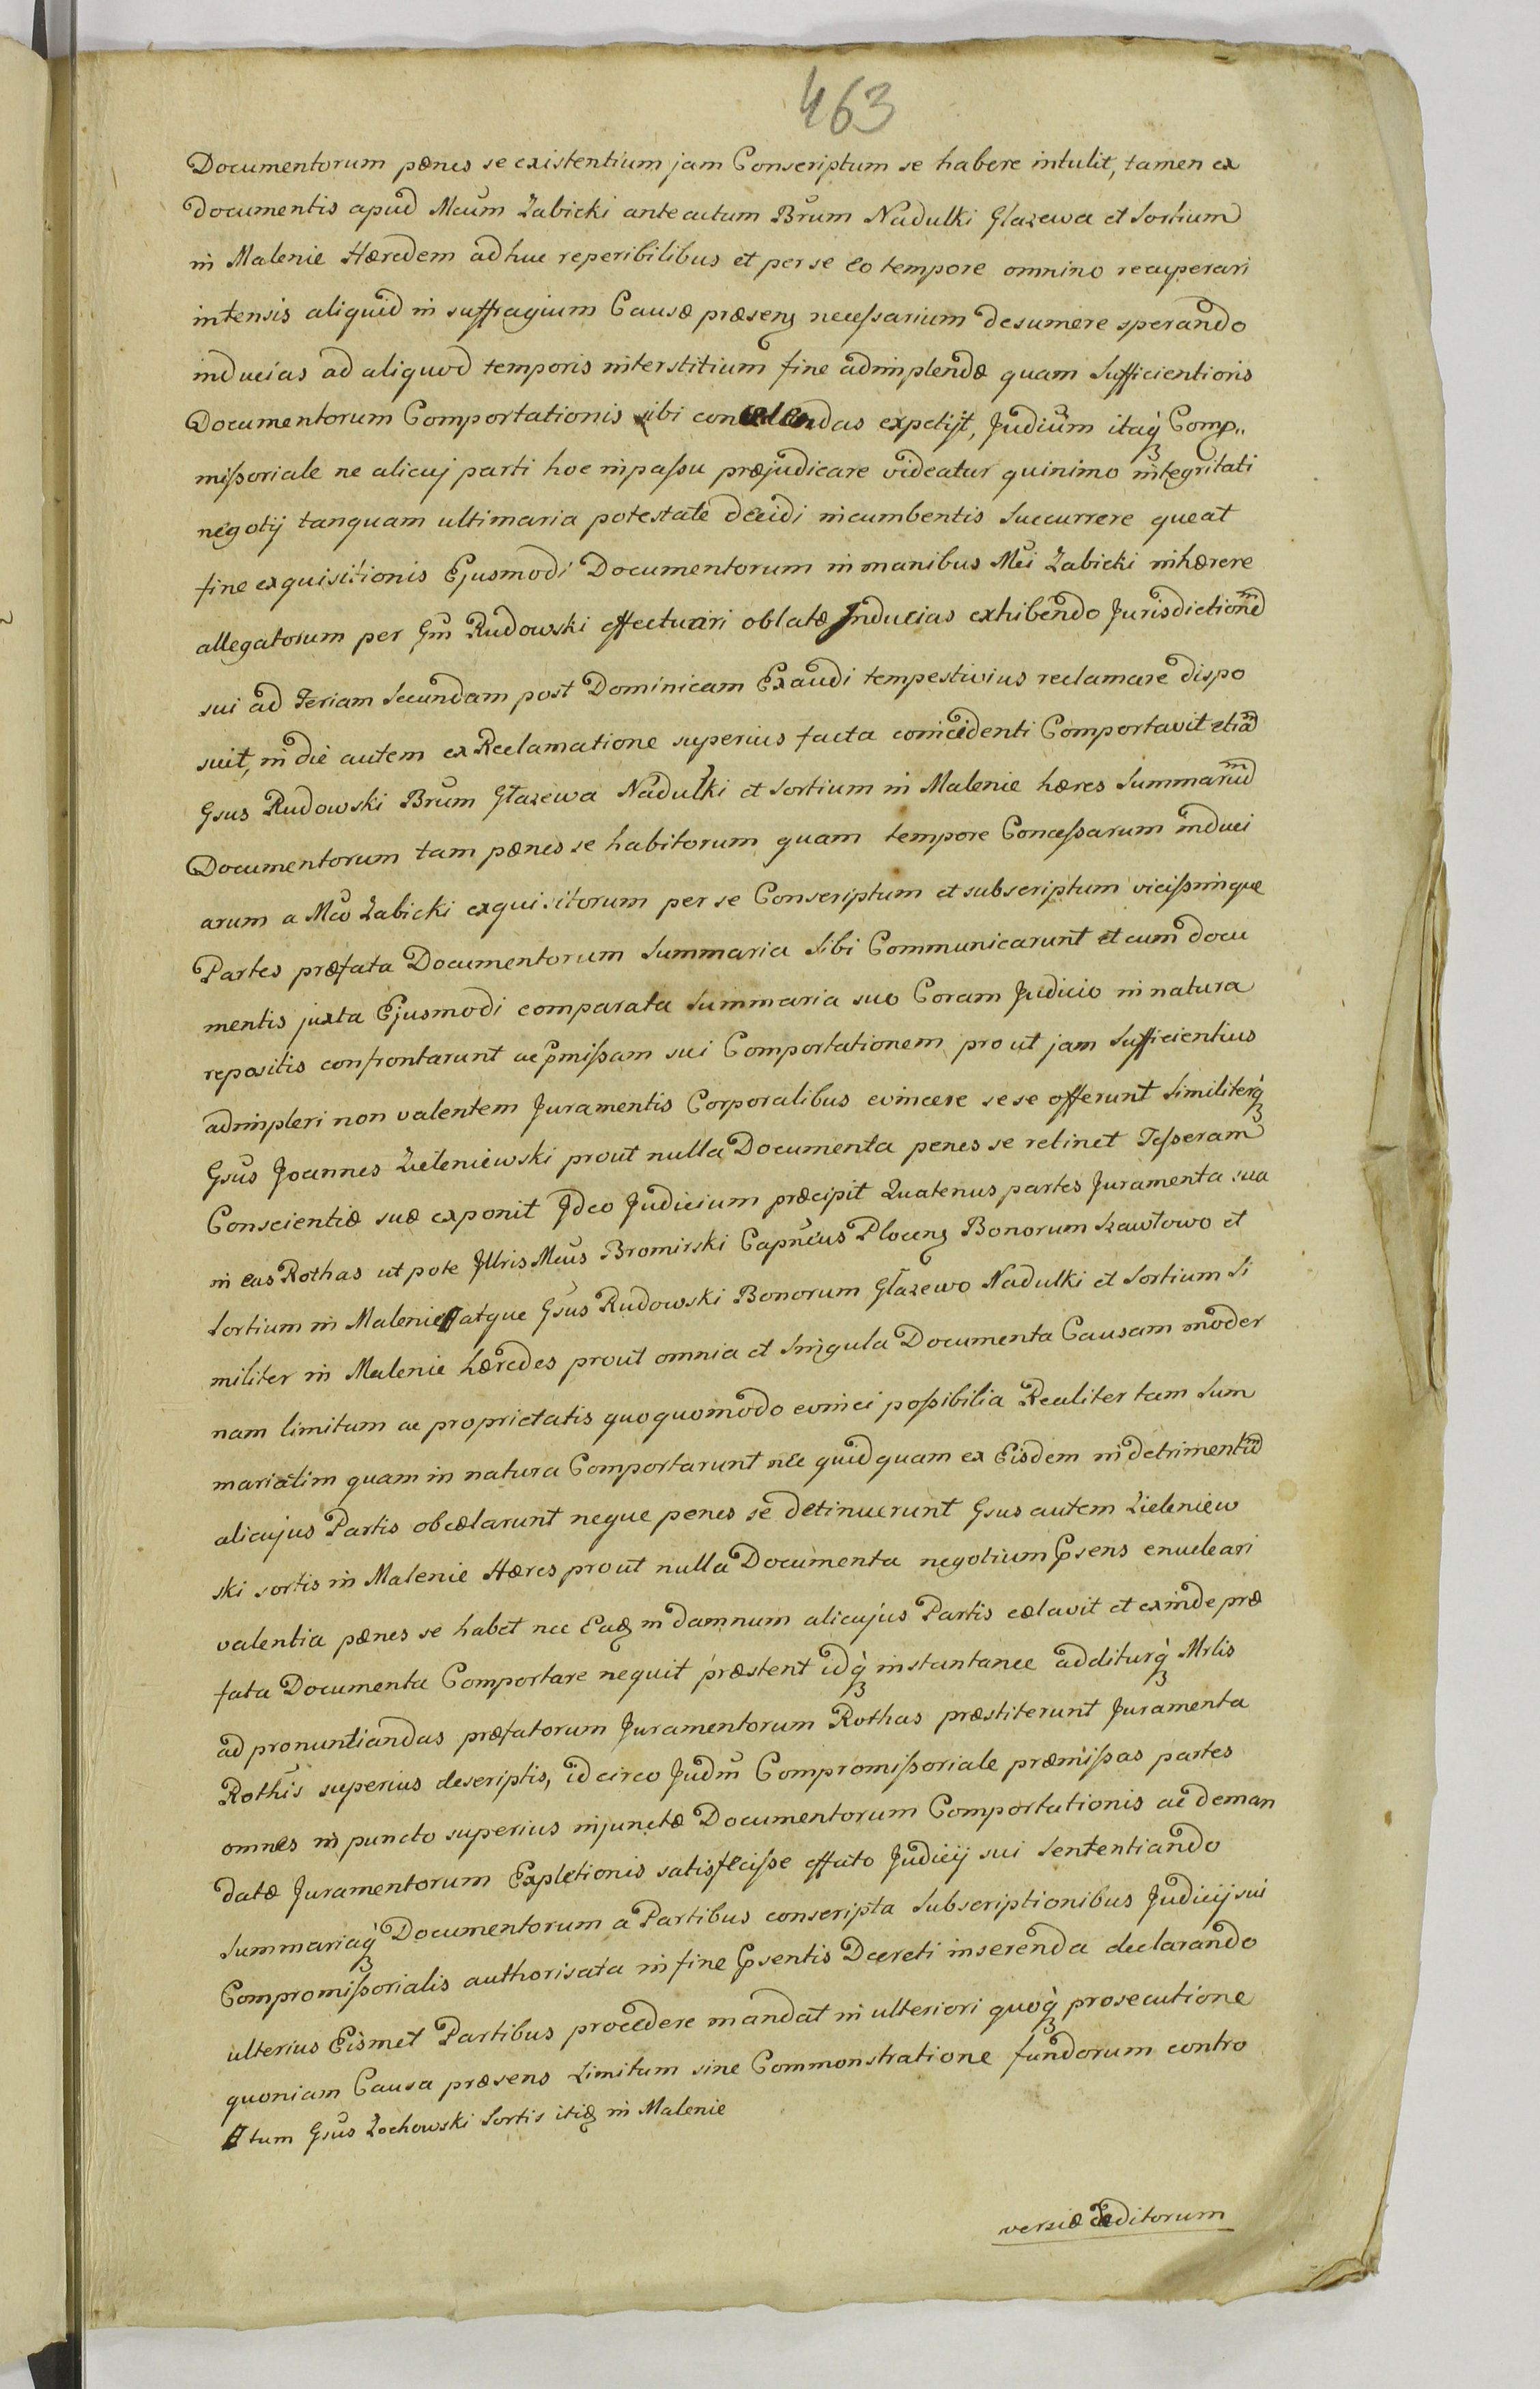 463
Documentorum pænes se existentium jam Conscriptum se habere intulit, tamen ex
documentis apud Mcum Zabicki anteactum Brum Nadułki Głazewa et Sortium
in Malenie Hæredem adhuc reperibilibus et per se eo tempore omnino recuperari
intensis aliquid in suffragium Causæ præsenʒ necessarium desumere sperando
inducias ad aliquod temporis interstitium fine adimplendæ quam Sufficientioris
Documentorum Comportationis sibi concedendas expetijt, Judium itaqʒ Comp„
missoriale ne alicuj parti hoc in passu præjudicare videatur quinimo integritati
negotij tanquam ultimaria potestate decidi incumbentis Succurrere queat
fine exquisitionis Ejusmodi Documentorum in manibus Mci Zabicki inhærere
allegatorum per Gm Rudowski effecturiri oblatæ Inducias exhibendo Jurisdictione͞m
sui ad Feriam Secundam post Dominicam Exaudi tempestivius reclamare dispo
suit, in die autem ex Reclamatione superius facta coincidenti Comportavit etiã
Gsus Rudowski Brum Głazewa Nadułki et Sortium in Malenie hæres Summariu͞m
Documentorum tam pænes se habitorum quam tempore Concessarum induci
arum a Mco Zabicki exquisitorum per se Conscriptum et subscriptum vicissimque
Partes præfata Documentorum Summaria Sibi Communicarunt et cum docu
mentis juxta Ejusmodi comparata Summaria suo Coram Judicio in natura
repositis confrontarunt ac p̃missam sui Comportationem prout jam Sufficientius
adimpleri non valentem Juramentis Corporalibus evincere sese offerunt Similiterqʒ
Gsus Joannes Zieleniewski prout nulla Documenta penes se retinet Tesseram
Conscientiæ suæ exponit Ideo Judicium præcipit Quatenus partes Juramenta sua
in eas Rothas ut pote Illris Mcus Bromirski Capneus Plocenʒ Bonorum Szawłowo et
Sortium in Malenie atque Gsus Rudowski Bonorum Głazewo Nadułki et Sortium Si
militer in Malenie hæredes prout omnia et Singula Documenta Causam moder
nam limitum ac proprietatis quoquomodo evinci possibilia Realiter tam Sum
mariatim quam in natura Comportarunt nec quidquam ex Eisdem in detrimentu͞m
alicujus Partis obcælarunt neque penes se detinuerunt Gsus autem Zieleniew
ski sortis in Malenie Hæres prout nulla Documenta negotium p̃sens enucleari
valentia pænes se habet nec Eaʒ in damnum alicujus Partis cælavit et exinde præ
fata Documenta Comportare nequit præstent idqʒ instantanee additurqʒ Mrlis
ad pronuntiandas præfatorum Juramentorum Rothas præstiterunt Juramenta
Rothis superius descriptis, idcirco Judm Compromissoriale præmissas partes
omnes in puncto superius injunctæ Documentorum Comportationis ac deman
datæ Juramentorum Expletionis satisfecisse effato Judicij sui Sententiando
Summariaqʒ Documentorum a Partibus conscripta Subscriptionibus Judicij sui
Compromissorialis authorisata in fine p̃sentis Decreti inserenda declarando
ulterius Eismet Partibus procedere mandat in ulteriori quoqʒ prosecutione
quoniam Causa præsens Limitum sine Commonstratione fundorum contro
tum Gsus Zochowski Sortis itiʒ in Malenie
versiæ deditorum